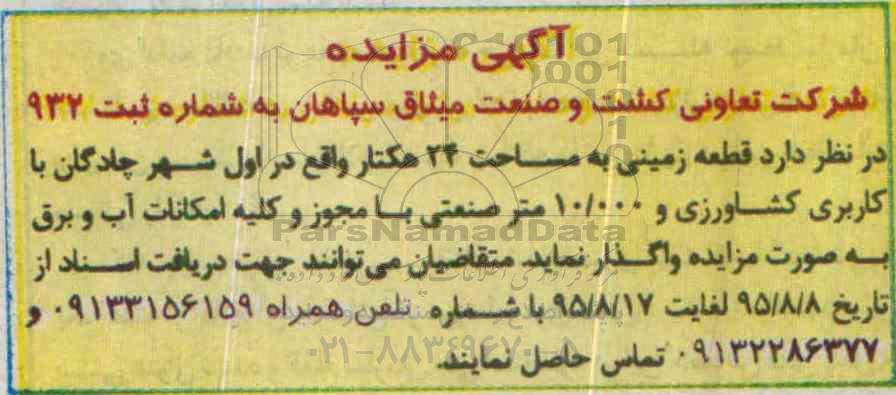 آگهی مزایده
شرکت تعاونی کشت و صنعت میثاق سپاهان به شماره ثبت ۹۳۲
در نظر دارد قطعه زمینی به مساحت ۲۴ هکتار واقع در اول شهر چادگان با
کاربری کشاورزی و ۱۰/۰۰۰ متر صنعتی با مجوز و کلیه امکانات آب و برق
به صورت مزایده واگذار نماید. متقاضیان می‌توانند جهت دریافت اسناد از
تاریخ ۹۵/۸/۸ لغایت ۹۵/۸/۱۷ با شماره تلفن همراه ۰۹۱۳۳۱۵۶۱۵۹ و
۰۹۱۳۲۲۸۶۳۷۷ تماس حاصل نمایند.
ParsNamadData
۰۲۱-۸۸۳۴۹۶۷۰